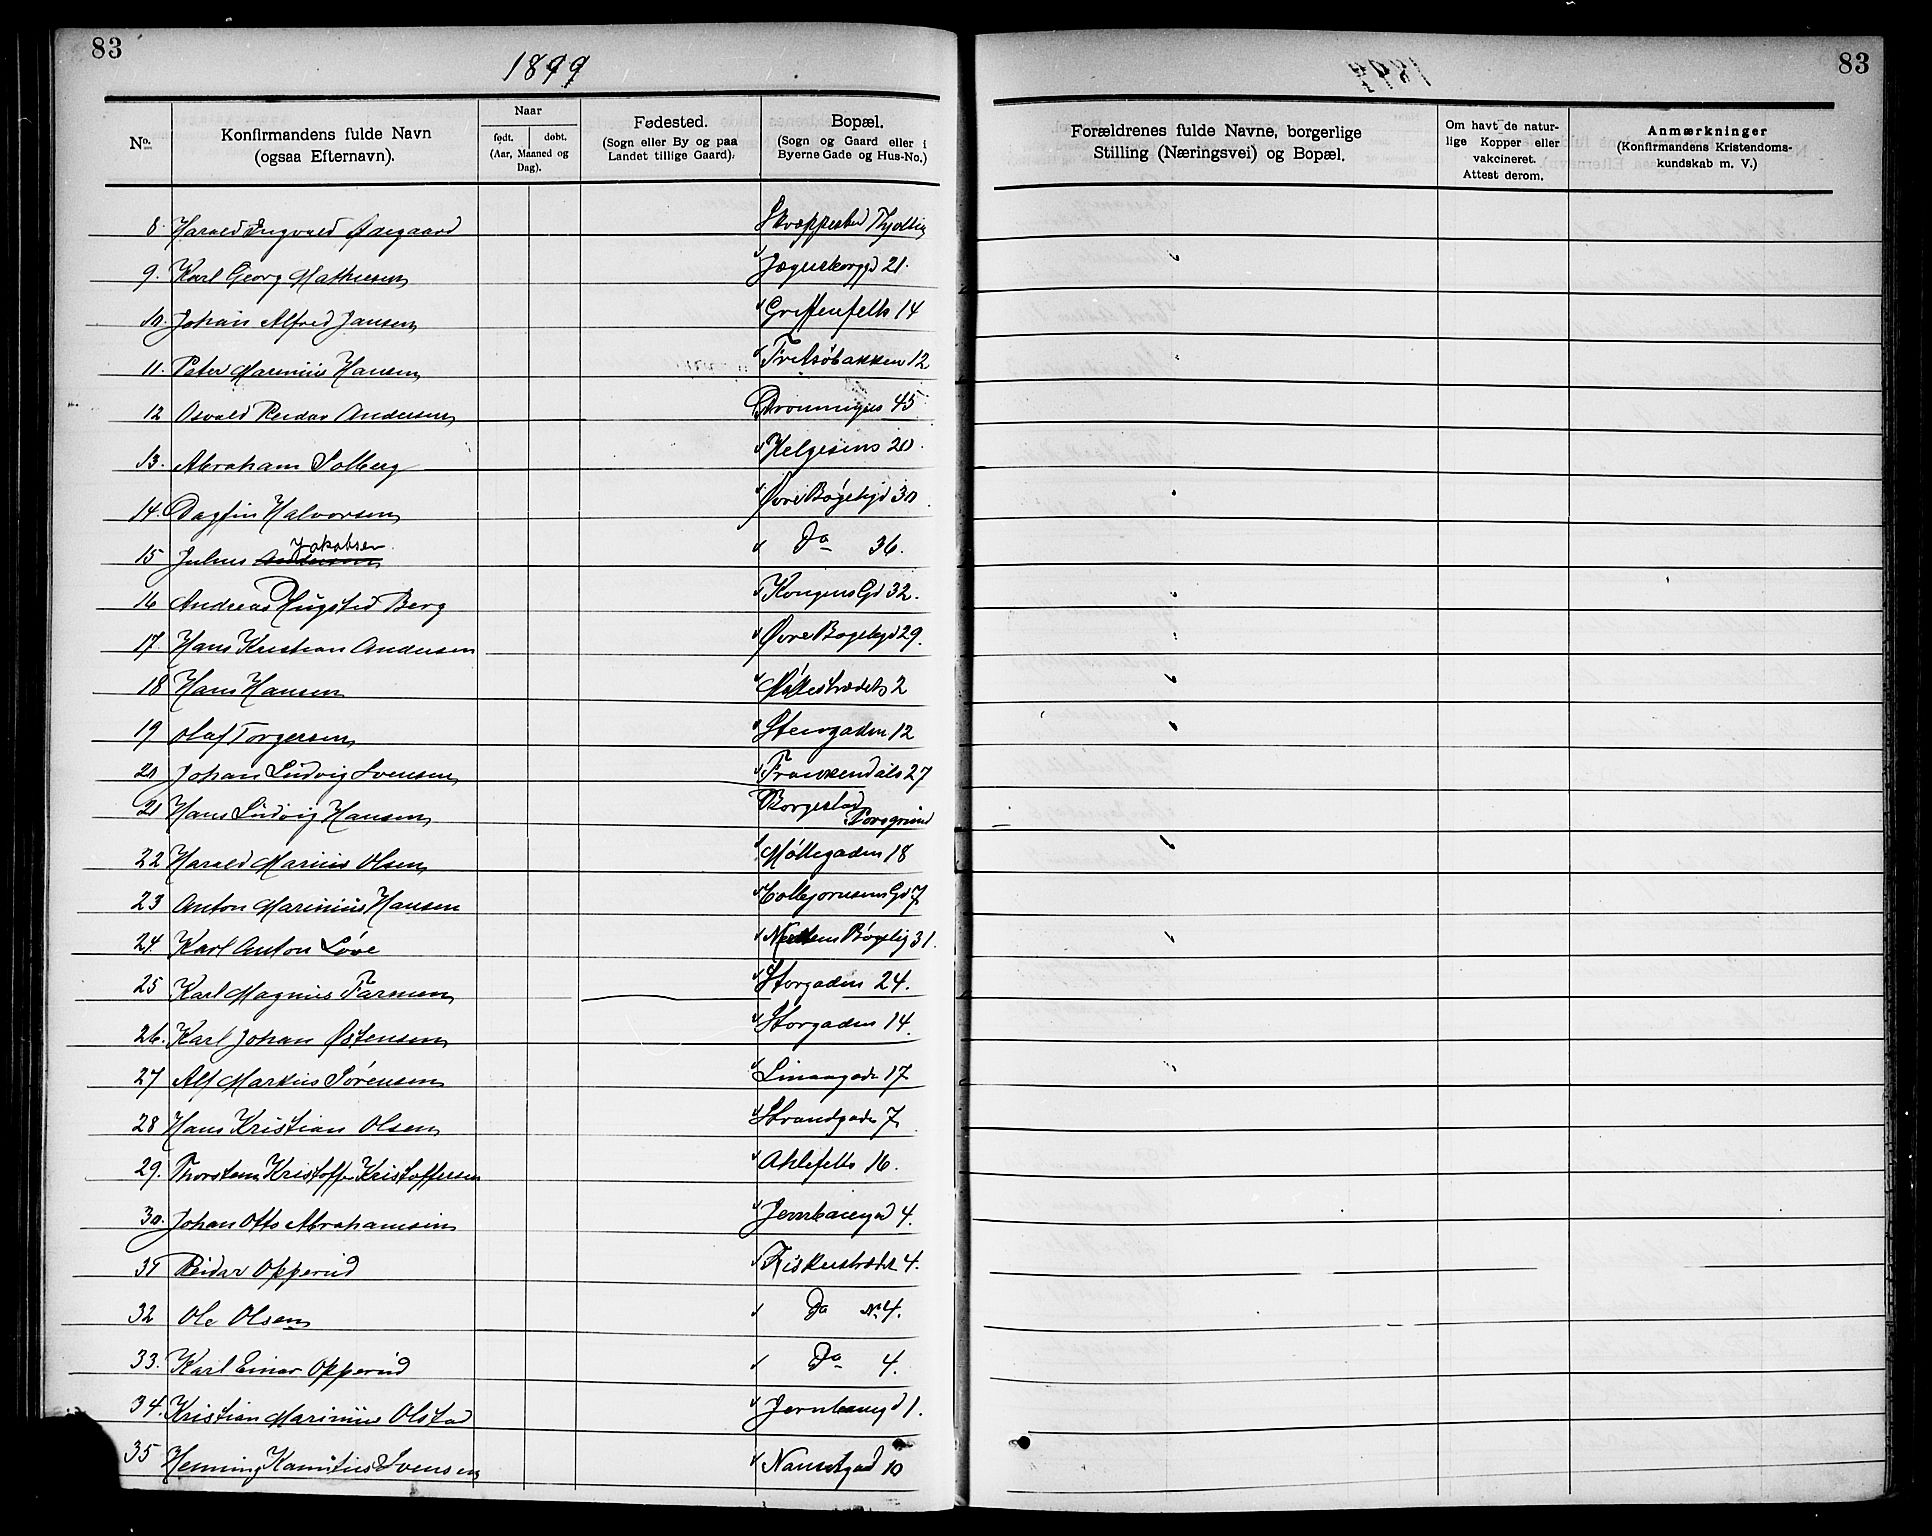 83
1899
No.
Konfirmandens fulde Navn
(ogsaa Efternavn).
Naar
født. døbt.
(Aar, Maaned og
Dag).
Fødested.
(Sogn eller By og paa
Landet tillige Gaard).
Bopæl.
(Sogn og Gaard eller i
Byerne Gade og Hus-No.)
8. Harald Ingvald Ødegaard
9. Karl Georg Mathiesen Jegersborggd 21.
10. Johan Alfred Jansen Griffenfelts 14
11. Peter Marinius Hansen Fritsöbakken 12
12 Osvald Reidar Andersen Dronningens 45
13. Abraham Solberg Helgesens 20.
14. Dagfin Halvorsen Øvre Bøgelygd 30.
15 Julius Andersen Jakobsen. Do 36.
16 Andreas Hugsted Berg Kongens Gd 32.
17. Hans Kristian Andersen Øvre Bøgelygd 29.
18 Hans Hansen 2
19 Olaf Torgersen Stengaden 12
20 Johan Ludvig Svensen Frankendals 27
21 Hans Ludvig Hansen Borgestad
Porsgrund
22 Harald Marius Olsen Møllegaden 18
23 Anton Marinius Hansen Colbjørnsens Gd 7
24. Karl Anton Løve Bøgelig 31.
25 Karl Magnus Farmen Storgaden 24.
26. Karl Johan Østensen Storgaden 14.
27 Alf Markus Sørensen Linaagade 17
28 Hans Kristian Olsen Strandgade 7
29. Thorstein Kristoffer Kristoffersen Ahlefelts 16.
30. Johan Otto Abrahamsen Jernbanegd 4.
31 Reidar Opperud Fiskerstrædet 4.
32 Ole Olsen Do No 4.
33. Karl Einar Opperud Do 4.
34. Kristian Marinius Olstad Jernbanegd 1.
35 Henning Kamitius Svensen Nansetgad 10
83
Forældrenes fulde Navne, borgerlige
Stilling (Næringsvei) og Bopæl.
Om havt de natur-
lige Kopper eller
vakcineret.
Attest derom.
Anmærkninger
(Konfirmandens Kristendoms-
kundskab m. V.)